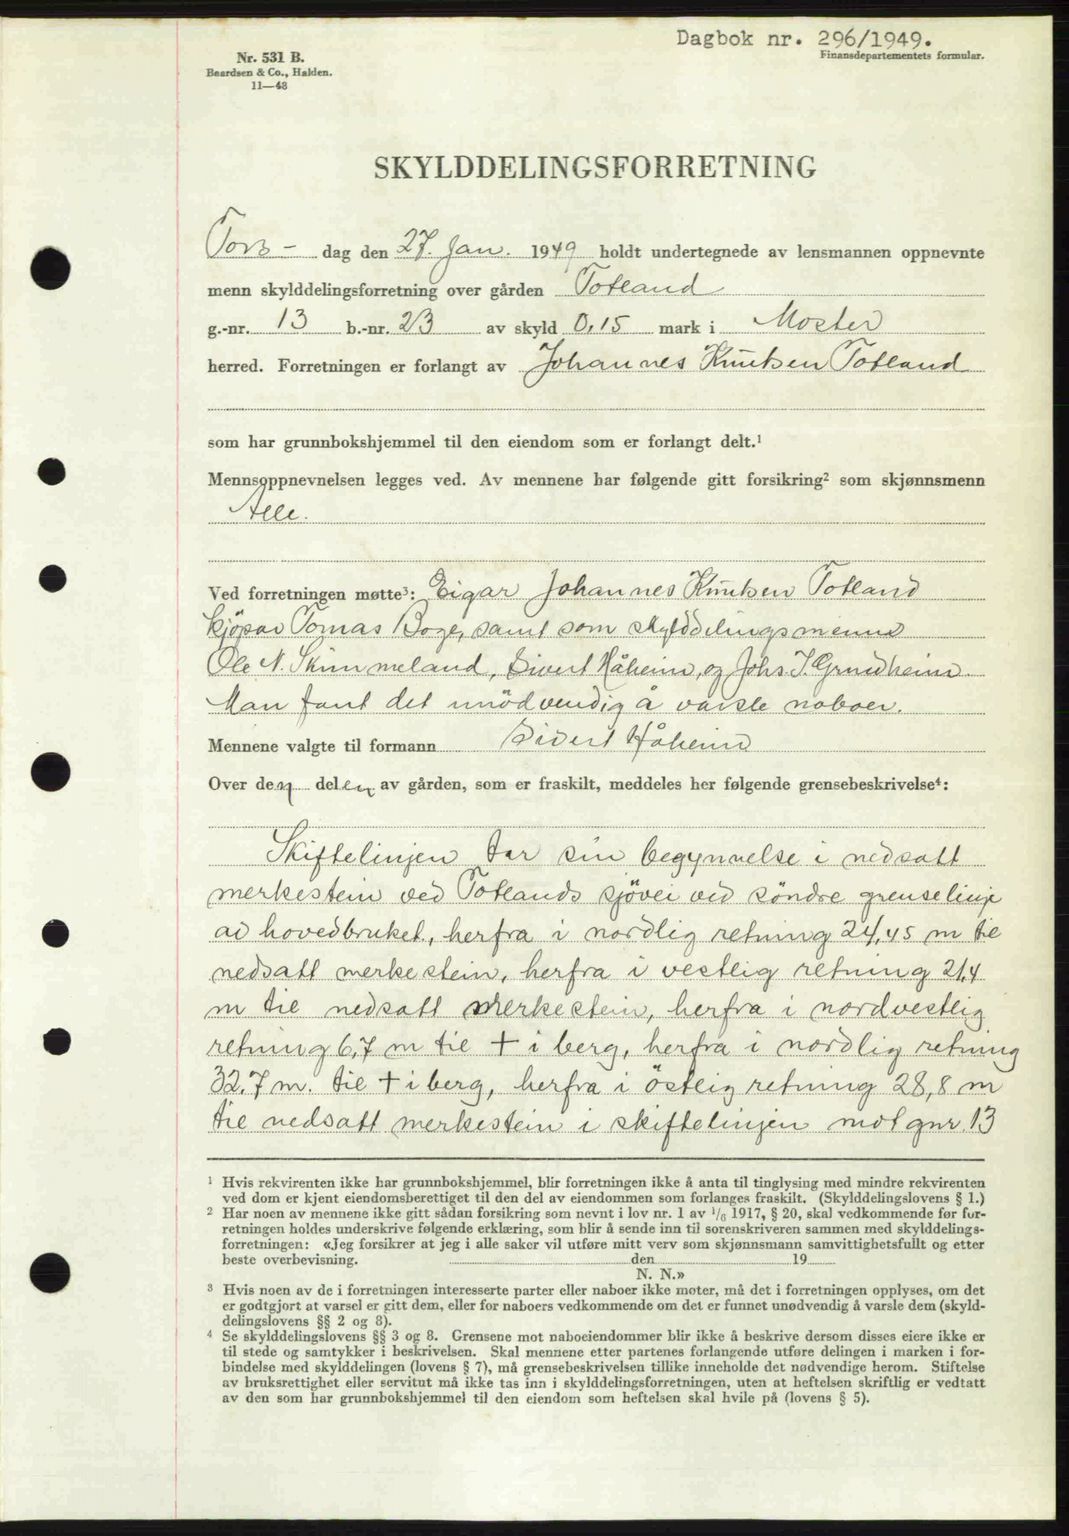 Dagbok nr. 296/1949.
Finansdepartementets formular.
Nr. 531 B.
Baardsen & Co., Halden.
11—48
SKYLDDELINGSFORRETNING
Tors- dag den 27. Jan. 1949 holdt undertegnede av lensmannen oppnevnte
menn skylddelingsforretning over gården Totland
g.-nr. 13 b.-nr. 23 av skyld 0,15 mark i Moster
herred. Forretningen er forlangt av Johannes Knutsen Totland
som har grunnbokshjemmel til den eiendom som er forlangt delt.¹
Mennsoppnevnelsen legges ved. Av mennene har følgende gitt forsikring² som skjønnsmenn
Alle.
Ved forretningen møtte³: Eigar Johannes Knutsen Totland
kjöpar Tomas Boge, samt som skylddelingsmenn
Ole N. Skimmeland, Sivert Håheim, og Johs. J. Grindheim.
Man fant det unödvendig å varsle naboer.
Mennene valgte til formann Sivert Håheim
Over den delen av gården, som er fraskilt, meddeles her følgende grensebeskrivelse⁴:
Skiftelinjen tar sin begynnelse i nedsatt
merkestein ved Totlands sjövei ved söndre grenselinje
av hovedbruket, herfra i nordlig retning 24,45 m til
nedsatt merkestein, herfra i vestlig retning 21,4
m til nedsatt merkestein, herfra i nordvestlig
retning 6,7 m til + i berg, herfra i nordlig retning
32,7 m. til + i berg, herfra i östlig retning 28,8 m
til nedsatt merkestein i skiftelinjen mot gnr. 13
¹ Hvis rekvirenten ikke har grunnbokshjemmel, blir forretningen ikke å anta til tinglysing med mindre rekvirenten
ved dom er kjent eiendomsberettiget til den del av eiendommen som forlanges fraskilt. (Skylddelingslovens § 1.)
² Har noen av mennene ikke gitt sådan forsikring som nevnt i lov nr. 1 av 1/6 1917, § 20, skal vedkommende før for-
retningen holdes underskrive følgende erklæring, som blir å sende inn til sorenskriveren sammen med skylddelings-
forretningen: «Jeg forsikrer at jeg i alle saker vil utføre mitt verv som skjønnsmann samvittighetsfullt og etter
beste overbevisning. den 19
N. N.»
³ Hvis noen av de i forretningen interesserte parter eller naboer ikke møter, må det i forretningen opplyses, om det
er godtgjort at varsel er gitt dem, eller for naboers vedkommende om det er funnet unødvendig å varsle dem (skyld-
delingslovens §§ 2 og 8).
⁴ Se skylddelingslovens §§ 3 og 8. Grensene mot naboeiendommer blir ikke å beskrive dersom disses eiere ikke er
til stede og samtykker i beskrivelsen. Skal mennene etter partenes forlangende utføre delingen i marken i for-
bindelse med skylddelingen (lovens § 7), må grensebeskrivelsen tillike inneholde det nødvendige herom. Stiftelse
av bruksrettighet eller servitut må ikke tas inn i skylddelingsforretningen, uten at heftelsen skriftlig er vedtatt
av den som har grunnbokshjemmel til den eiendom som heftelsen skal hvile på (lovens § 5).